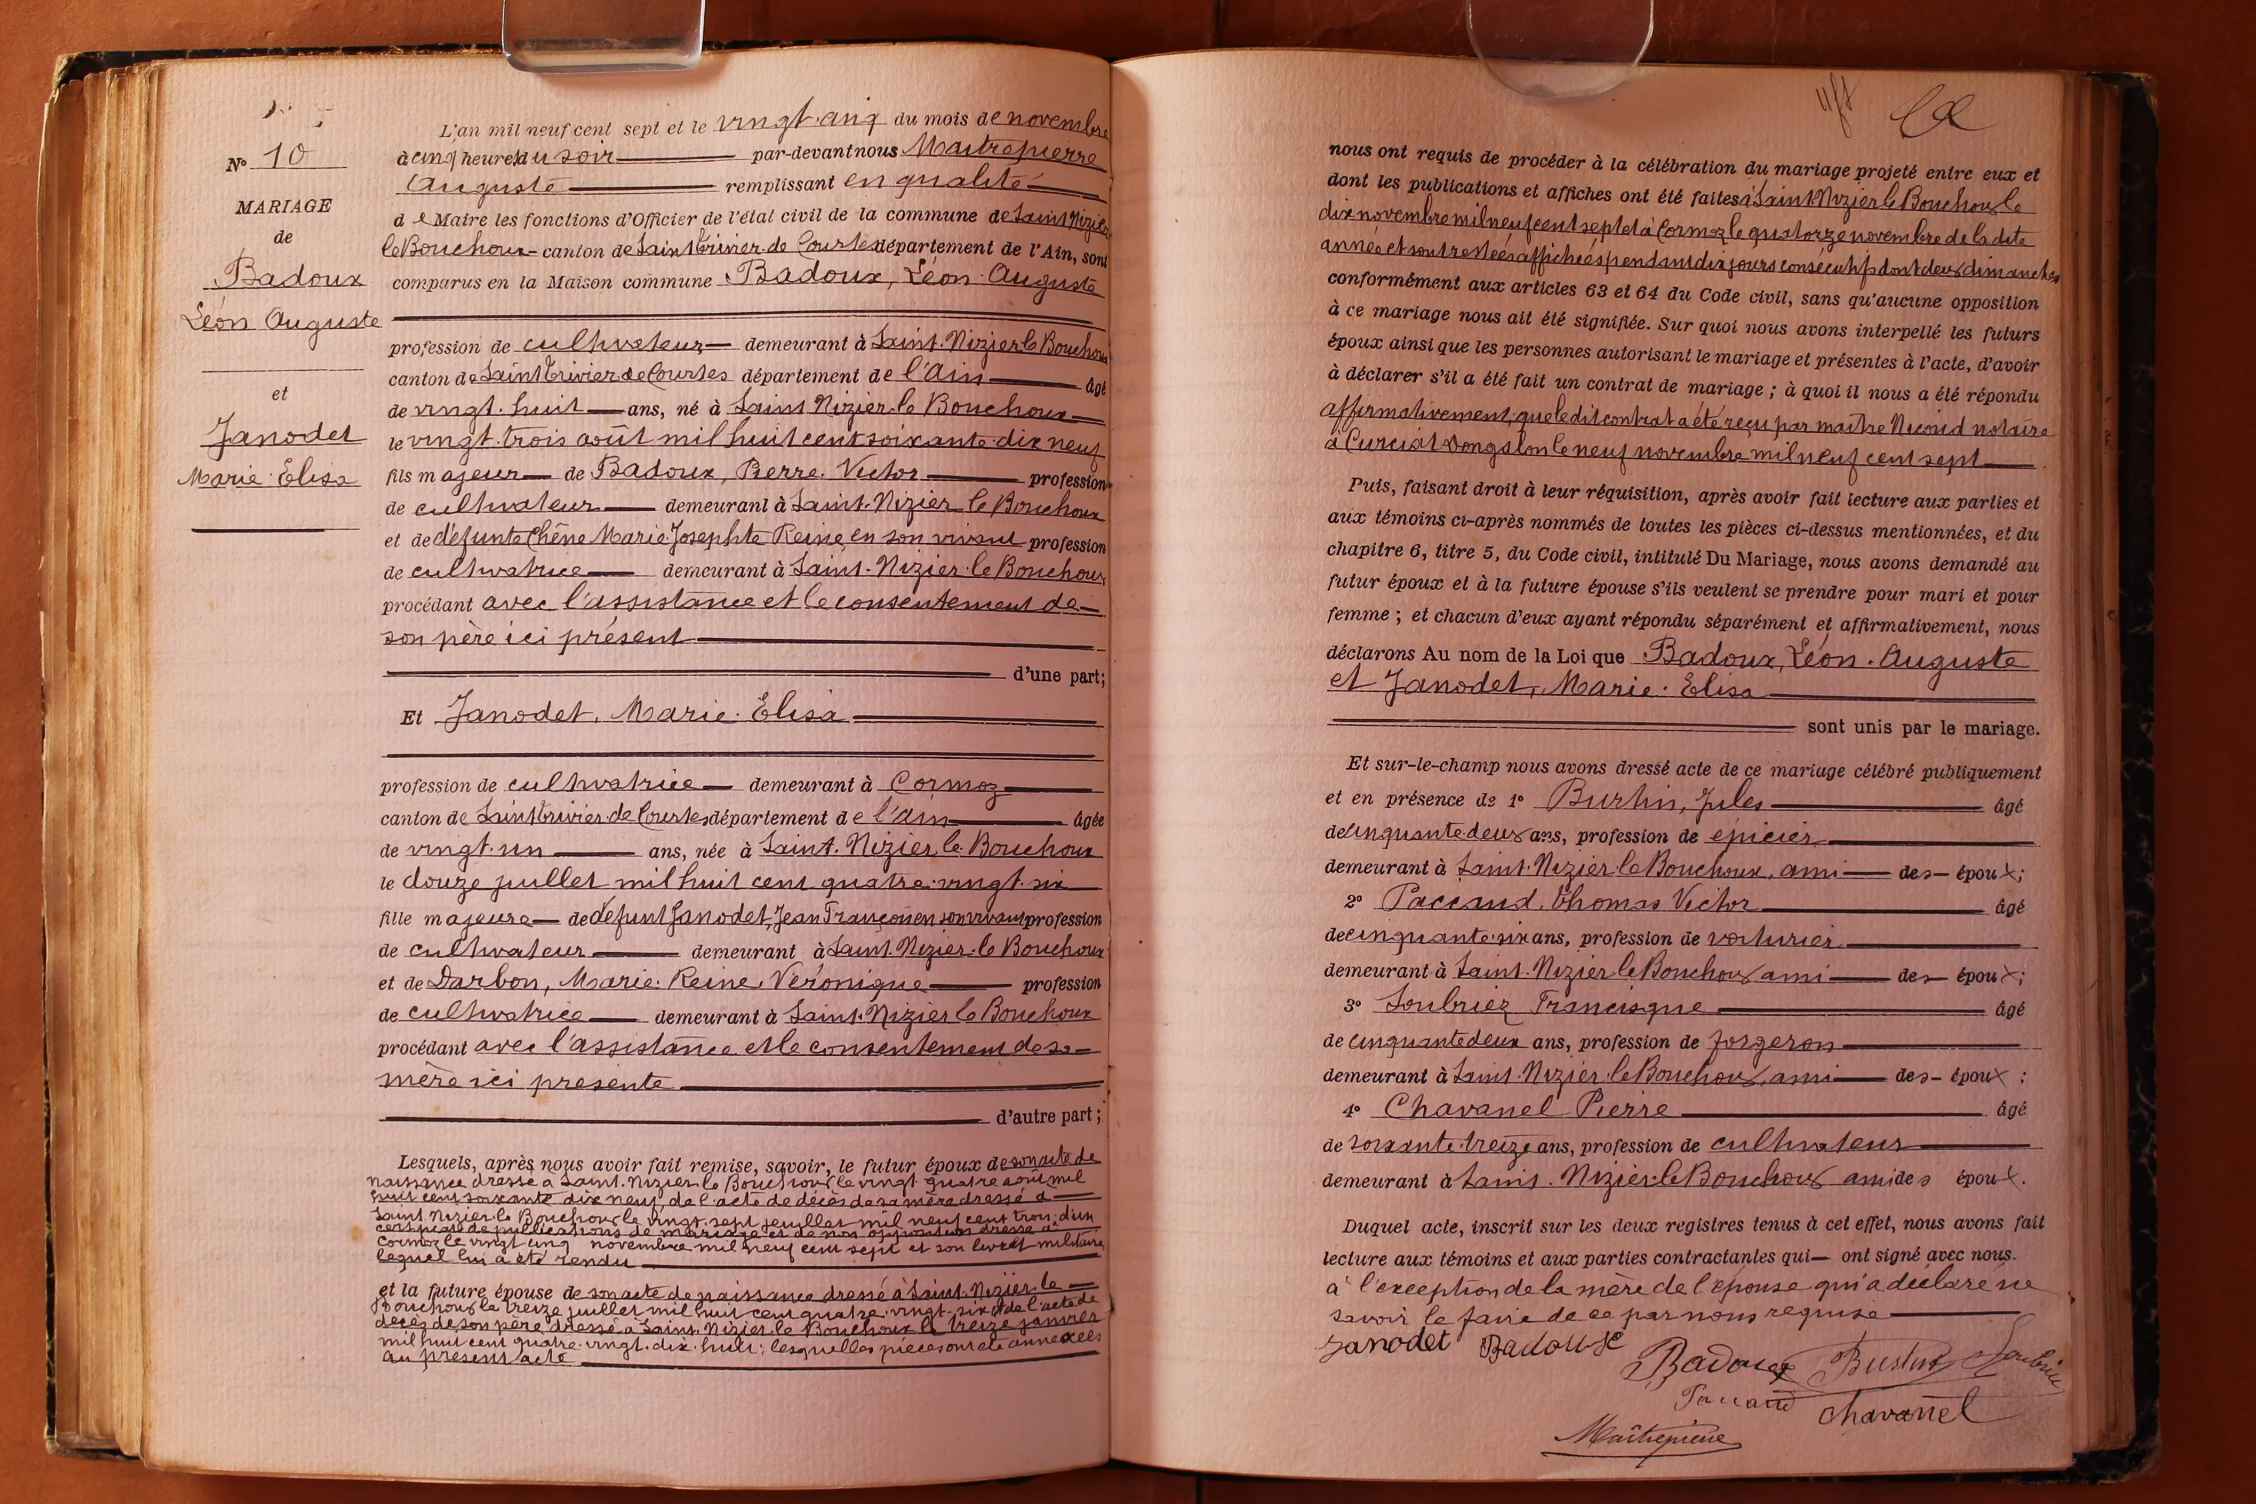 N° 10
MARIAGE
de
Badoux
Léon Auguste
et
Janodet
Marie Elisa
L'an mil neuf cent sept et le vingt cinq du mois de novembre
à cinq heures du soir par-devant nous Maitrepierre
Auguste remplissant en qualité
de Maire les fonctions d'Officier de l'état civil de la commune de Saint Nizier
le Bouchoux canton de Saint Trivier de Courtes département de l'Ain, sont
comparus en la Maison commune Badoux, Léon Auguste
profession de cultivateur demeurant à Saint Nizier le Bouchoux
canton de Saint Trivier de Courtes département de l'Ain âgé
de vingt huit ans, né à Saint Nizier le Bouchoux
le vingt trois août mil huit cent soixante dix neuf
fils majeur de Badoux, Pierre Victor profession
de cultivateur demeurant à Saint Nizier le Bouchoux
et de défunte Chêne Marie Josephte Reine en son vivant profession
de cultivatrice demeurant à Saint Nizier le Bouchoux
procédant avec l'assistance et le consentement de
son père ici présent
d'une part;
Et Janodet, Marie Elisa
profession de cultivatrice demeurant à Cormoz
canton de Saint Trivier de Courtes département de l'Ain âgée
de vingt un ans, née à Saint Nizier le Bouchoux
le douze juillet mil huit cent quatre vingt six
fille majeure de défunt Janodet, Jean François en son vivant profession
de cultivateur demeurant à Saint Nizier le Bouchoux
et de Darbon, Marie Reine Véronique profession
de cultivatrice demeurant à Saint Nizier le Bouchoux
procédant avec l'assistance et le consentement de sa
mère ici présente
d'autre part;
Lesquels, après nous avoir fait remise, savoir, le futur époux de son acte de
naissance dressé à Saint Nizier le Bouchoux le vingt quatre août mil
huit cent soixante dix neuf, de l'acte de décès de sa mère dressé à
Saint Nizier le Bouchoux le vingt sept juillet mil neuf cent trois, d'un
certificat de publications de mariage et de non opposition dressé à
Cormoz le vingt cinq novembre mil neuf cent sept et son livret militaire
lequel lui a été rendu
et la future épouse de son acte de naissance dressé à Saint Nizier le
Bouchoux le treize juillet mil huit cent quatre vingt six et de l'acte de
décès de son père dressé à Saint Nizier le Bouchoux le treize janvier
mil huit cent quatre vingt dix huit; lesquelles pièces ont été annexées
au présent acte
nous ont requis de procéder à la célébration du mariage projeté entre eux et
dont les publications et affiches ont été faites à Saint Nizier le Bouchoux le
dix novembre mil neuf cent sept et à Cormoz le quatorze novembre de la dite
année et sont restées affichées pendant dix jours consécutifs dont deux dimanches
conformément aux articles 63 et 64 du Code civil, sans qu'aucune opposition
à ce mariage nous ait été signifiée. Sur quoi nous avons interpellé les futurs
époux ainsi que les personnes autorisant le mariage et présentes à l'acte, d'avoir
à déclarer s'il a été fait un contrat de mariage; à quoi il nous a été répondu
affirmativement, que le dit contrat a été reçu par maître Nicoud notaire
à Curciat Dongalon le neuf novembre mil neuf cent sept
Puis, faisant droit à leur réquisition, après avoir fait lecture aux parties et
aux témoins ci-après nommés de toutes les pièces ci-dessus mentionnées, et du
chapitre 6, titre 5, du Code civil, intitulé Du Mariage, nous avons demandé au
futur époux et à la future épouse s'ils veulent se prendre pour mari et pour
femme; et chacun d'eux ayant répondu séparément et affirmativement, nous
déclarons Au nom de la Loi que Badoux, Léon Auguste
et Janodet, Marie Elisa
sont unis par le mariage.
Et sur-le-champ nous avons dressé acte de ce mariage célébré publiquement
et en présence de 1° Burtin, Jules âgé
de cinquante deux ans, profession de épicier
demeurant à Saint Nizier le Bouchoux, ami des époux;
2° Paccaud, Thomas Victor âgé
de cinquante six ans, profession de voiturier
demeurant à Saint Nizier le Bouchoux ami des époux;
3° Soubriez Francisque âgé
de cinquante deux ans, profession de forgeron
demeurant à Saint Nizier le Bouchoux, ami des époux;
4° Chavanel Pierre âgé
de soixante treize ans, profession de cultivateur
demeurant à Saint Nizier le Bouchoux ami des époux.
Duquel acte, inscrit sur les deux registres tenus à cet effet, nous avons fait
lecture aux témoins et aux parties contractantes qui ont signé avec nous.
à l'exception de la mère de l'épouse qui a déclaré ne
savoir le faire de ce par nous requise
Janodet Badoux
Badoux Burtin Soubriez
Paccaud Chavanel
Maitrepierre